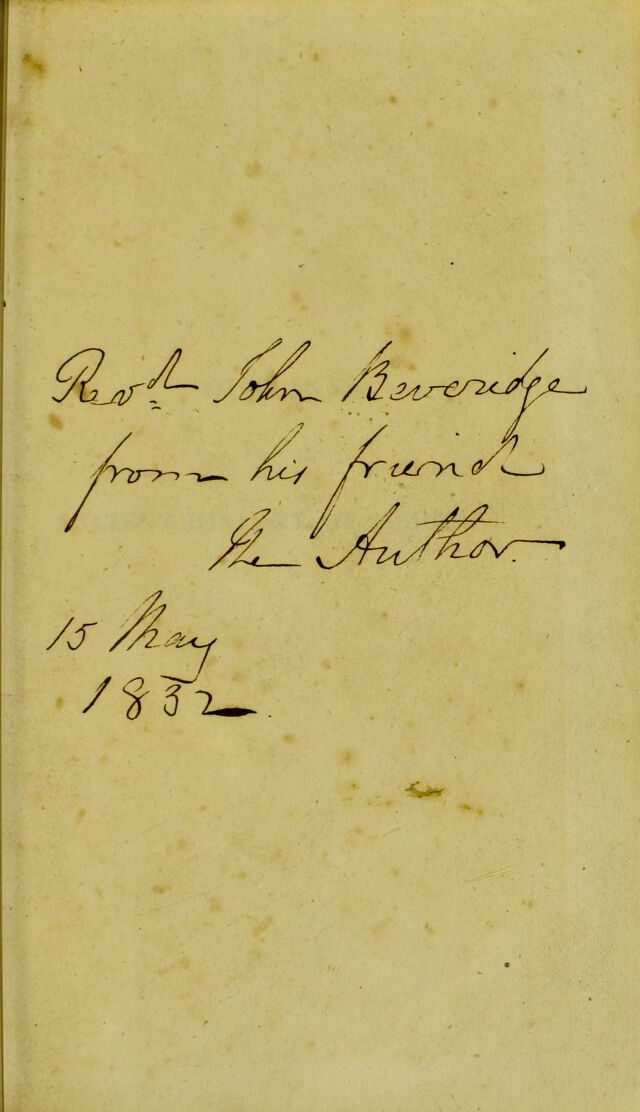 Revd John Beveridge
from his friend
The Author.
15 May
1832